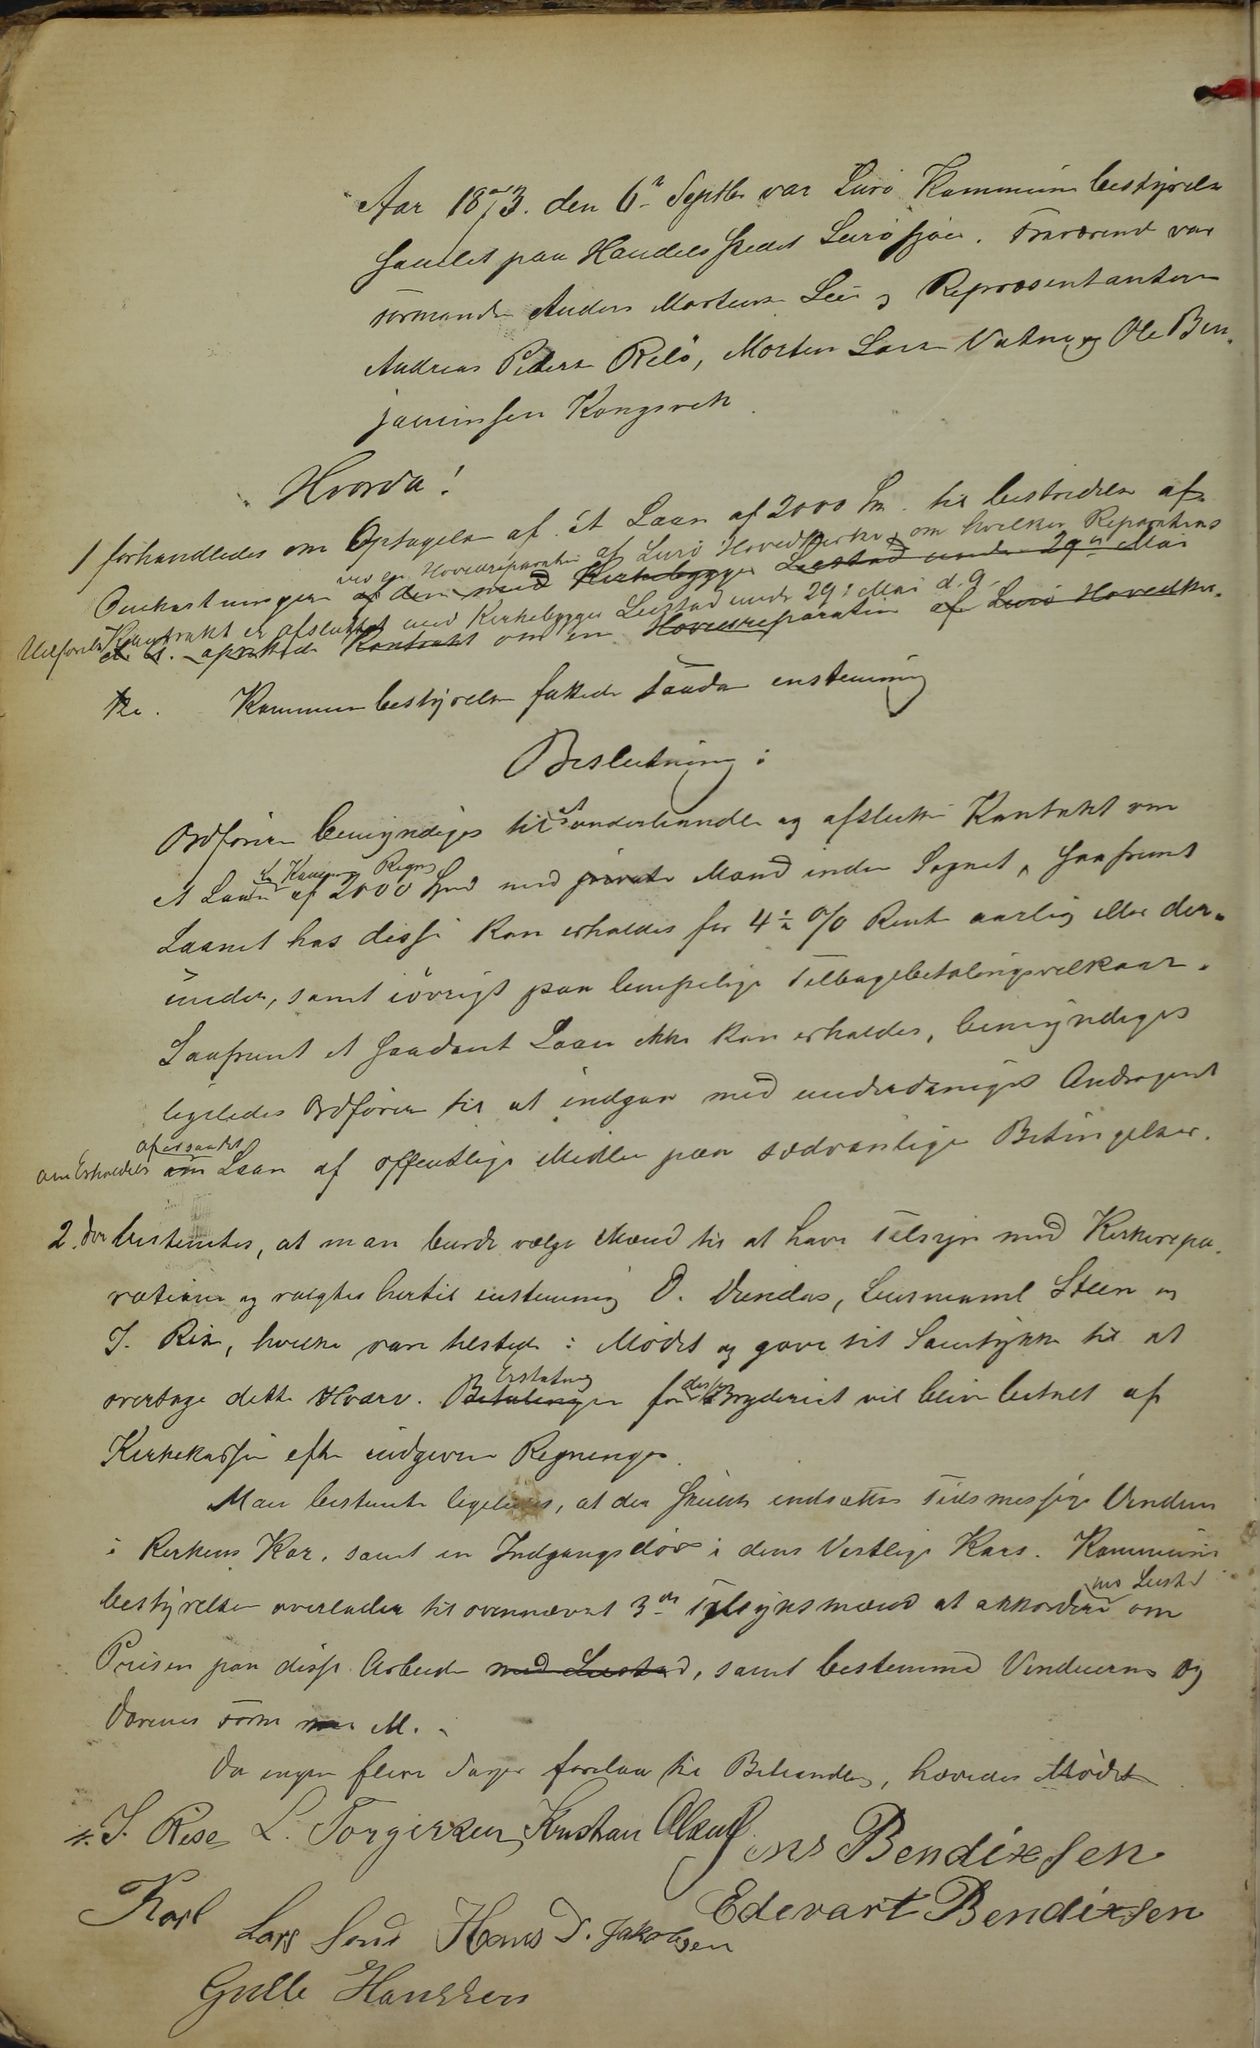 Aar 1873. den 6te Septbr var Lurö Kommunebestyrelse
samlet paa Handelsstedet Lurösjöen. Fraværend var
Formand Anders Mortens Lei og Repræsentanterne
Andreas Peders Relö, Morten Lars Vatne og Ole Ben-
jaminsen Kongsvik.
Hvorda!
1 forhandledes om Optagelse af et Laan af 2000 Spd. til bestridelse af
ved en Hovedreparation af Lurö Hovedkirke, om hvilken Reparations
Omkostningerne af den med Kirkebygger Leestad under 29de Mai
Udførelse Kontrakt er afsluttet med Kirkebygger Leestad under 29: Mai d. a.
oprettede Kontrakt om en Hovedreparation af Lurö Hovedkir-
ke. Kommunebestyrelsen fattede saadan enstemmig
Beslutning:
Ordföreren bemyndiges til at underhandle og afslutte Kontrakt om
for Kommunens Regning
et Laan af 2000 Spd med private Mænd inden Sognet, saafremt
Laanet hos disse kan erholdes for 4½ % Rente aarlig eller der-
under, samt iövrigt paa lempelige Tilbagebetalingsvilkaar.
Saafremt et saadant Laan ikke kan erholdes, bemyndiges
ligeledes Ordförer til at indgaa med underdanigst Andragende
om Erholdelse af omsaakte om Laan af offentlige Midler paa sædvanlige Betingelser.
2. Der bestemtes, at man burde vælge Mænd til at have Tilsyn med Kirkerepa-
rationen og valgtes hertil enstemmig O. Dundas, Lensmand Steen og
J. Rise, hvilke vare tilstede i Mödet og gave sit Samtykke til at
overtage dette Hværv. Betalingen Erstatning for deres Bryderiet vil blive betalt af
Kirkekassen efter indgivne Regninger.
Man bestemte ligeledes, at der skulde indsættes Tidsmessige Vinduer
i Kirkens Kor, samt en Indgangsdör i dens Vestlige Kors. Kommune
bestyrelsen overlader til ovennævnt 3de Tilsynsmænd at akkordere med Leestad om
Prisen paa disse Arbeider med Leestad, samt bestemme Vinduerne og
Dörenes Form m. M.
Da ingen flere Sager forelaa til Behandling, hævedes Mödet
J. Rise L. Torgersen Kristian Olsen Jens Bendixsen
Karl Lars Hans D. Jakobsen Edevart Bendixsen
Gulle Hanssen